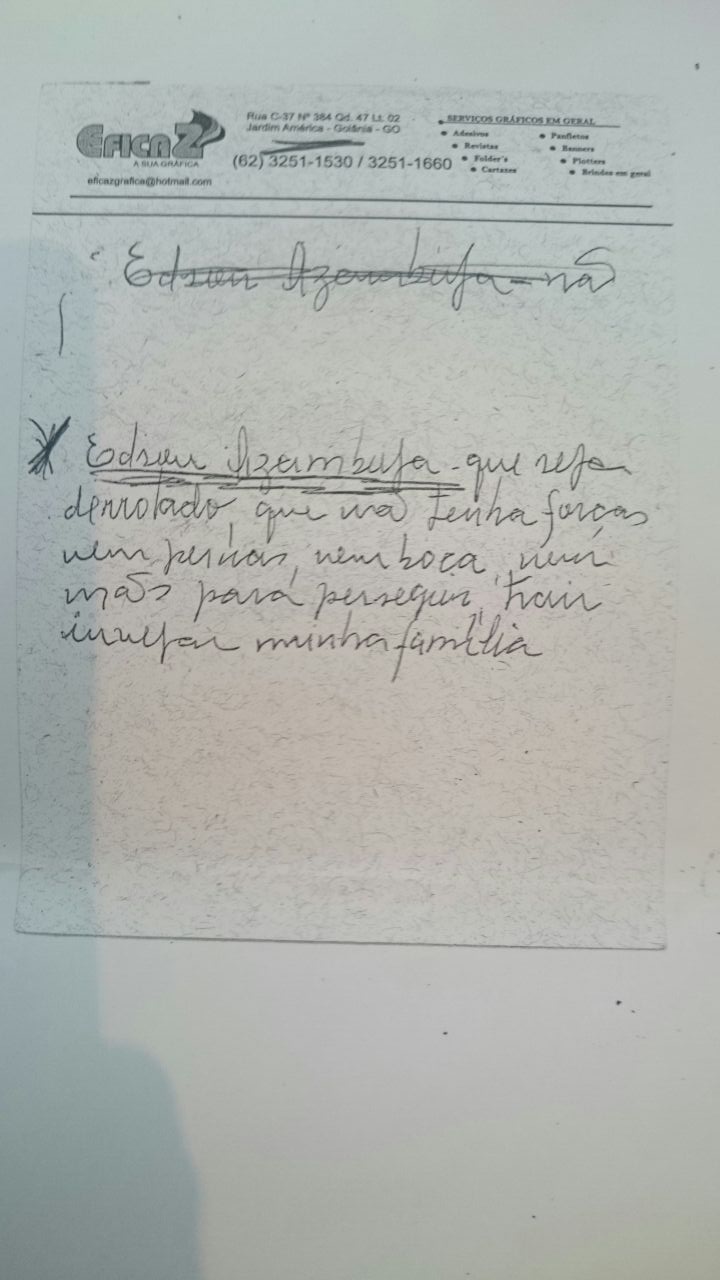 EFICAZ
A SUA GRÁFICA
eficazgrafica@hotmail.com
Rua C-37 Nº 384 Qd. 47 Lt. 02
Jardim América - Goiânia - GO
(62) 3251-1530 / 3251-1660
SERVIÇOS GRÁFICOS EM GERAL
• Adesivos
• Revistas
• Folder's
• Cartazes
• Panfletos
• Banners
• Plotters
• Brindes em geral
Edson Azambuja - não
Edson Azambuja - que seja
derrotado, que não tenha forças
nem pernas, nem boca, nem
mãos para perseguir, trair
invejar minha família